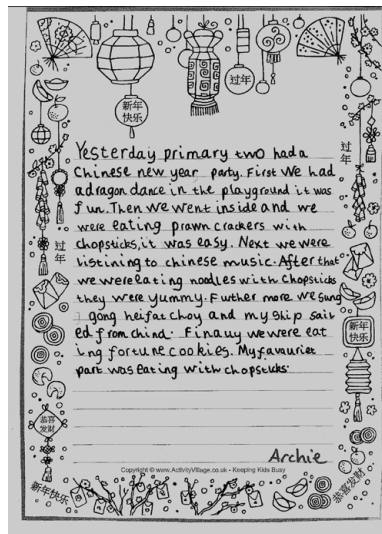 过年
新年
快乐
过年
Yesterday primary two had a
Chinese new year party. First we had
a dragon dance in the playground it was
fun. Then we went inside and we
were eating prawn crackers with
chopsticks, it was easy. Next we were
listining to chinese music. After that
we were eating noodles with chopsticks
they were yummy. Futher more we sung
gong hei fat choy and my ship sail
ed from china. Finally we were eat
ing fortune cookies. My favauriet
part was eating with chopsticks.
过年
新年
快乐
恭喜
发财
Archie
Copyright © www.ActivityVillage.co.uk - Keeping Kids Busy
新年快乐
恭喜发财